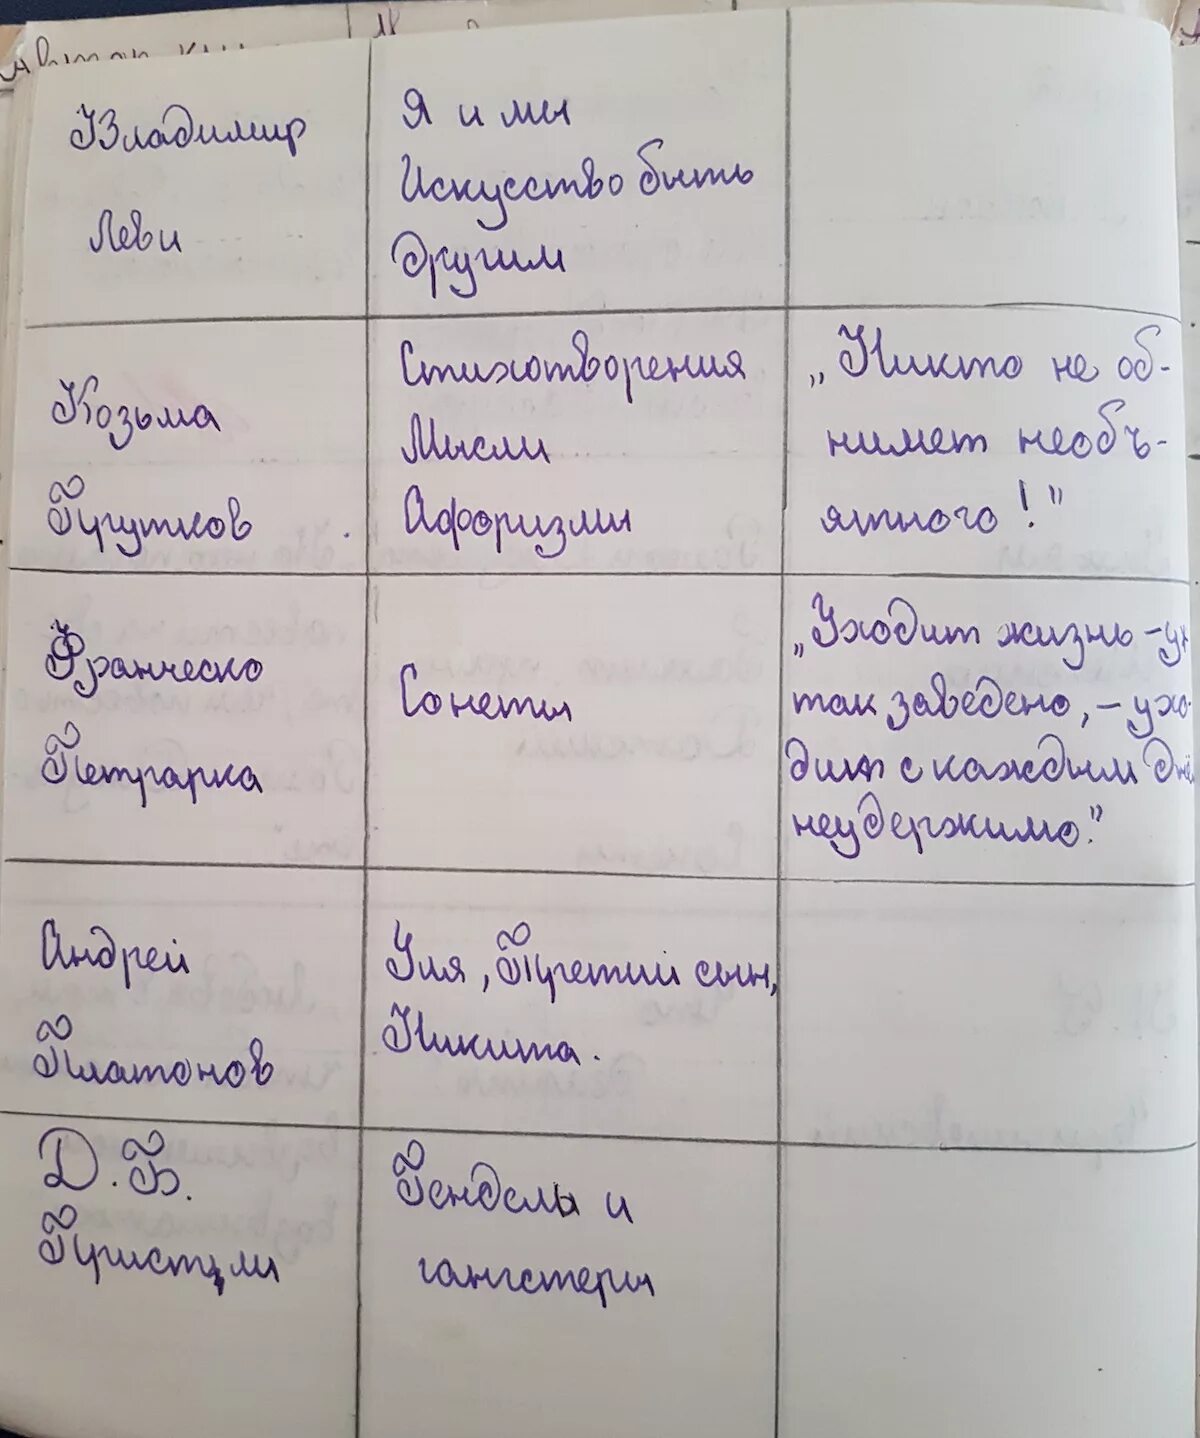 Автор
Владимир
Леви
Я и мы
Искусство быть
другим
Козьма
Прутков
Стихотворения
Мысли
Афоризмы
„Никто не об-
нимет необъ-
ятного!"
Франческо
Петрарка
Сонеты
„Уходит жизнь, – ух
так заведено, – ухо-
дит с каждым днём
неудержимо."
Андрей
Платонов
Уля, Третий сын,
Никита.
Д. Б.
Пристли
Гендель и
гангстеры